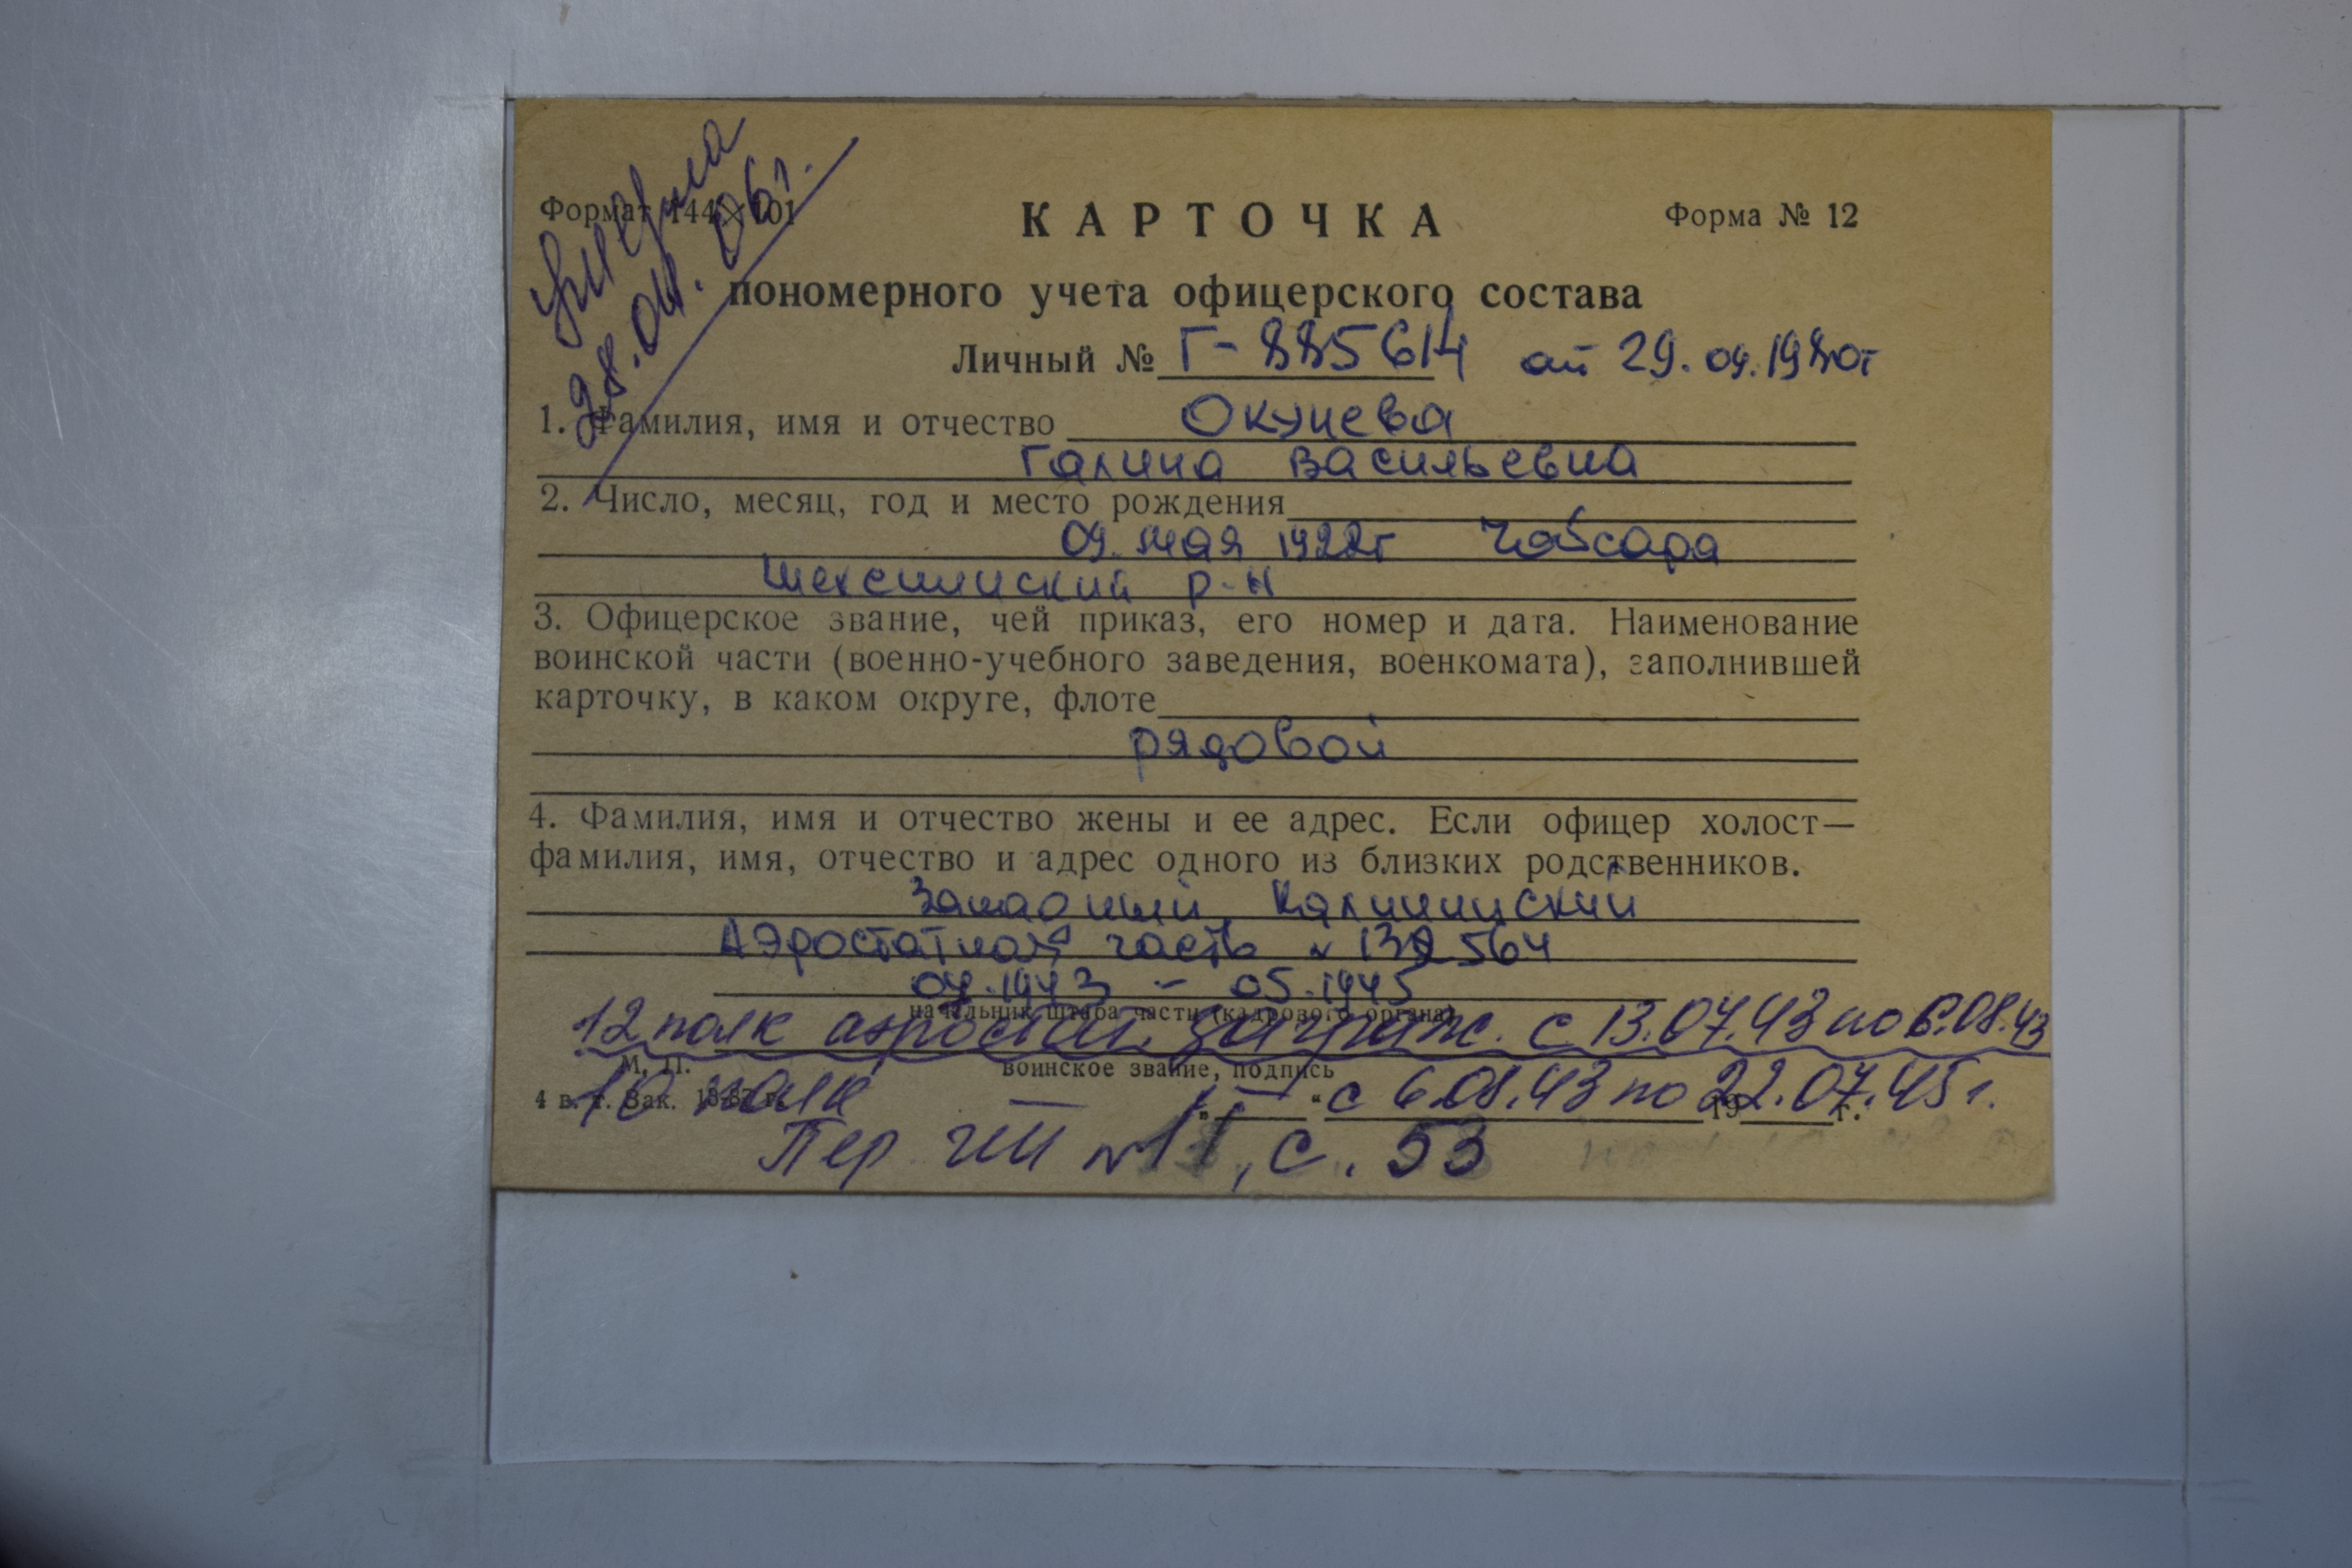 умерла
28.04.06г.
Формат 144×101
КАРТОЧКА
Форма № 12
пономерного учета офицерского состава
Личный № Г-885614 от 29.04.1980г
1. Фамилия, имя и отчество Окунева
Галина Васильевна
2. Число, месяц, год и место рождения
09. мая 1922г Чебсара
Шекснинский р-н
3. Офицерское звание, чей приказ, его номер и дата. Наименование
воинской части (военно-учебного заведения, военкомата), заполнившей
карточку, в каком округе, флоте
рядовой
4. Фамилия, имя и отчество жены и ее адрес. Если офицер холост—
фамилия, имя, отчество и адрес одного из близких родственников.
Западный, Калининский
Аэростатная часть № 132564
07.1943 – 05.1945
начальник штаба части (кадрового органа)
12 полк аэростат. заграж. с 13.07.43 по 6.08.43
М. П.
воинское звание, подпись
10 полк — " — с 6.08.43 по 22.07.45г.
4 в. т. Зак. „ “ 19 г.
Пер чт №11, с. 53